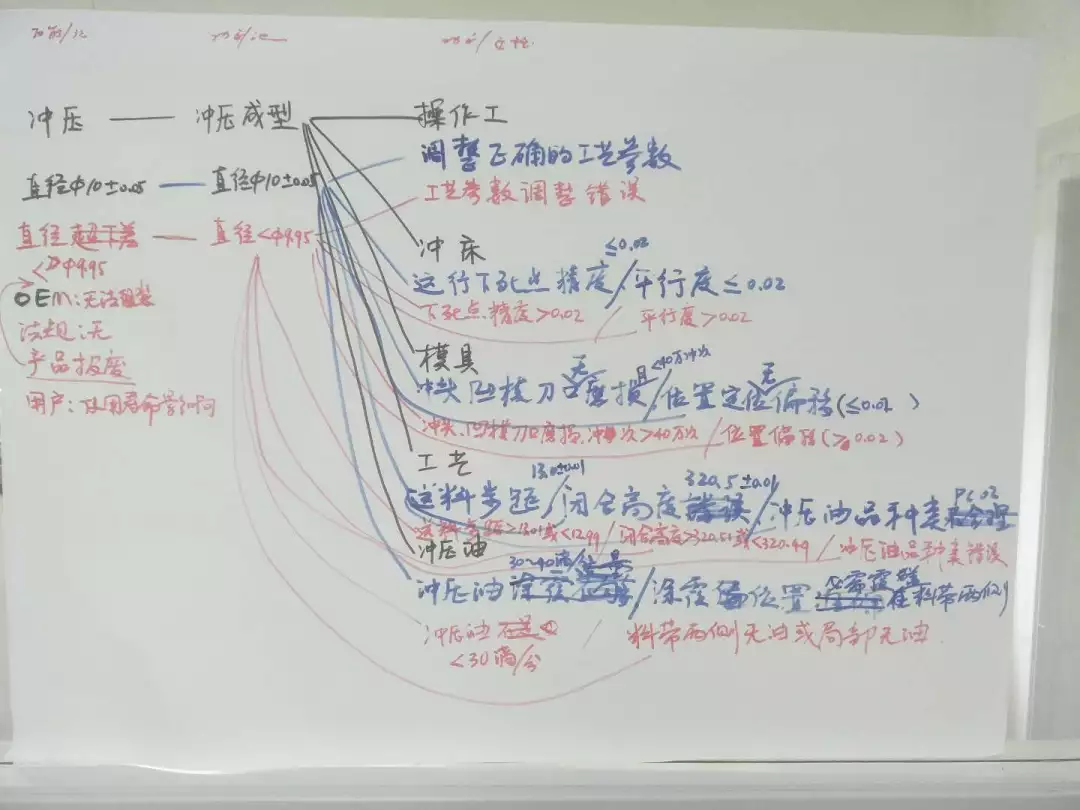 冲压 冲压成型 操作工
调整正确的工艺参数
直径Φ10±0.05 直径Φ10±0.05
工艺参数调整错误
直径超下差 直径<Φ9.95
<Φ9.95
冲床
≤0.02
运行下死点精度/平行度≤0.02
OEM:无法
下死点精度>0.02 / 平行度>0.02
法规:无
产品报废
模具
无 且<40万冲次 无
冲头凹模刀口磨损/位置定位偏移(≤0.02)
用户:使用寿命
冲头、凹模刀口磨损,冲次>40万次/位置偏移(≥0.02)
工艺
13.0±0.01 320.5±0.01
送料步距/闭合高度错误/冲压油品种类
送料步距≥13.01或<12.99/闭合高度>320.51或<320.49/冲压油品种类错误
冲压油
30~40滴/分
冲压油涂覆/涂覆位置 在料带两侧
冲压油 / 料带两侧无油或局部无油.
<30滴/分